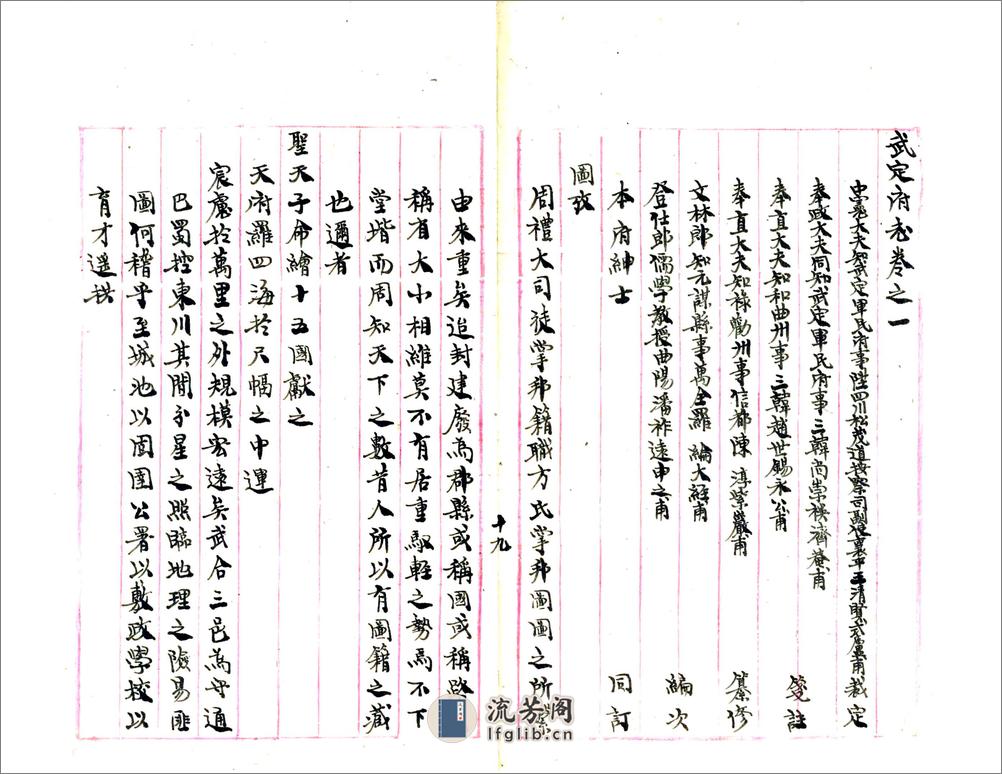 武定府志卷之一
忠憲大夫知武定軍民府事陞四川松茂道按察司副使襄平王清賢式盧甫裁定
奉政大夫同知武定軍民府事三韓尚崇祺濟菴甫 箋註
奉直大夫知和曲州事三韓趙世錫永公甫
奉直大夫知祿勸州事信都陳淳紫巖甫 纂修
文林郎知元謀縣事萬全羅綸大經甫
登仕郎儒學教授曲陽潘祚遠申之甫 編次
本府紳士 同訂
圖攷
周禮大司徒掌邦籍職方氏掌邦圖圖之所繫
由來重矣追封建廢為郡縣或稱國或稱路
稱有大小相維莫不有居重馭輕之勢焉不下
堂堦而周知天下之數昔人所以有圖籍之藏
也邇者
聖天子命繪十五國獻之
天府羅四海於尺幅之中運
宸慮於萬里之外規模宏遠矣武合三邑為守通
巴蜀控東川其間分星之照臨地理之險易匪
圖何稽乎至城池以固圉公署以敷政學校以
育才遥拱
十九
流芳阁
lfglib.cn